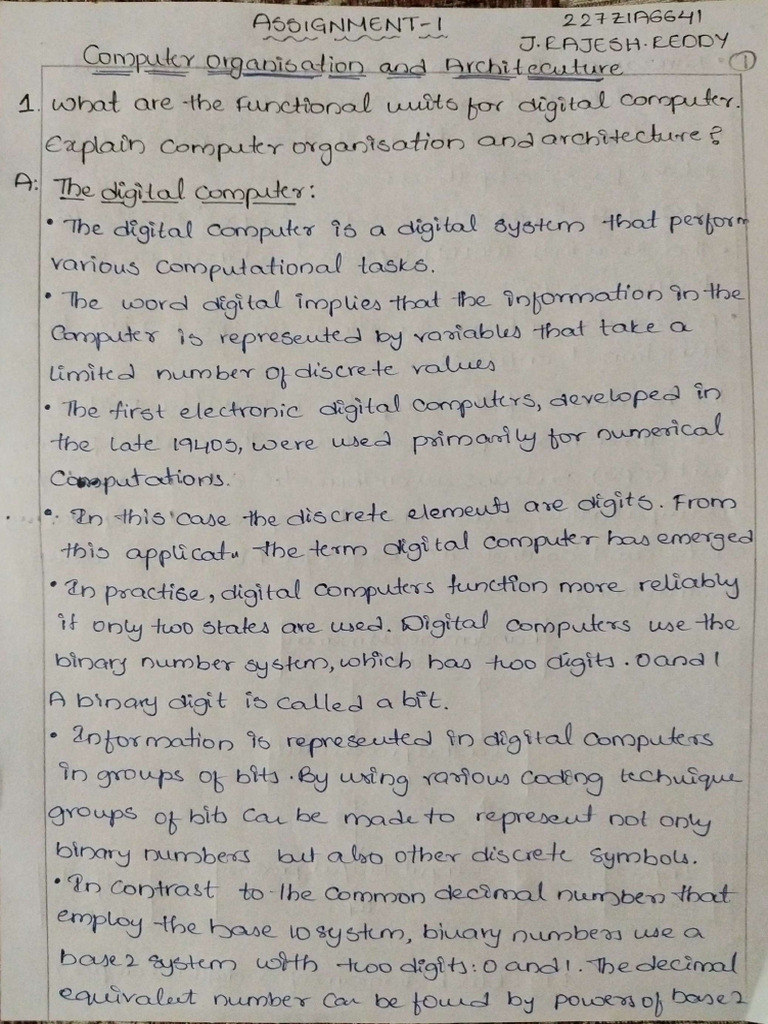 ASSIGNMENT-1
227Z1A6641
J.RAJESH.REDDY
Computer organisation and Architecuture
1
1. What are the functional units for digital computer.
Explain computer organisation and architecture?
A: The digital computer:
• The digital computer is a digital system that perform
various computational tasks.
• The word digital implies that the information in the
computer is represented by variables that take a
limited number of discrete values
• The first electronic digital computers, developed in
the late 1940s, were used primarily for numerical
Computations.
• In this case the discrete elements are digits. From
this applicat.. the term digital computer has emerged
• In practise, digital computers function more reliably
if only two states are used. Digital computers use the
binary number system, which has two digits. 0 and 1
A binary digit is called a bit.
• Information is represented in digital computers
in groups of bits. By using various coding technique
groups of bits can be made to represent not only
binary numbers but also other discrete symbols.
• In contrast to the common decimal numbers that
employ the base 10 system, binary numbers use a
base 2 system with two digits: 0 and 1. The decimal
equivalent number can be found by powers of base 2